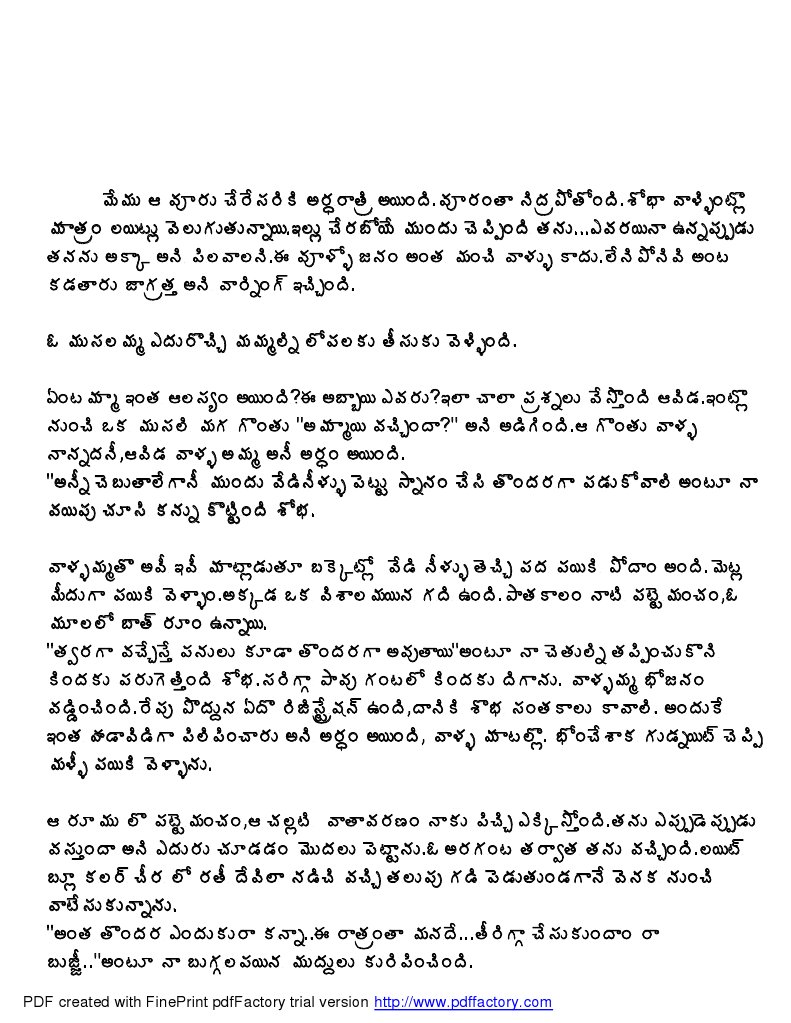 మేము ఆ వూరు చేరేసరికి అర్ధరాత్రి అయింది.వూరంతా నిద్రపోతోంది.శోభా వాళ్ళింట్లొ
మాత్రం లయిట్లు వెలుగుతున్నాయి.ఇల్లు చేరబోయే ముందు చెప్పింది తను...ఎవరయినా ఉన్నప్పుడు
తనను అక్కా అని పిలవాలని.ఈ వూళ్ళో జనం అంత మంచి వాళ్ళు కాదు.లేనిపోనివి అంట
కడతారు జాగ్రత్త అని వార్నింగ్ ఇచ్చింది.
ఓ ముసలమ్మ ఎదురొచ్చి మమ్మల్ని లోపలకు తీసుకు వెళ్ళింది.
ఏంటమ్మా ఇంత ఆలస్యం అయింది?ఈ అబ్బాయి ఎవరు?ఇలా చాలా ప్రశ్నలు వేస్తొంది ఆవిడ.ఇంట్లొ
నుంచి ఒక ముసలి మగ గొంతు "అమ్మాయి వచ్చిందా?" అని అడిగింది.ఆ గొంతు వాళ్ళ
నాన్నదనీ,ఆవిడ వాళ్ళ అమ్మ అనీ అర్ధం అయింది.
"అన్నీ చెబుతాలేగానీ ముందు వేడినీళ్ళు పెట్టు స్నానం చేసి తొందరగా పడుకోవాలి అంటూ నా
వయిపు చూసి కన్ను కొట్టింది శోభ.
వాళ్ళమ్మతొ అవీ ఇవీ మాట్లాడుతూ బక్కెట్లో వేడి నీళ్ళు తెచ్చి పద పయికి పోదాం అంది.మెట్ల
మీదుగా పయికి వెళ్ళాం.అక్కడ ఒక విశాలమయిన గది ఉంది.పాతకాలం నాటి పట్టెమంచం,ఓ
మూలలో బాత్ రూం ఉన్నాయి.
"త్వరగా వచ్చేస్తే పనులు కూడా తొందరగా అవుతాయి"అంటూ నా చెతుల్ని తప్పించుకొని
కిందకు పరుగెత్తింది శోభ.సరిగ్గా పావు గంటలో కిందకు దిగాను. వాళ్ళమ్మ భోజనం
వడ్డించింది.రేపు పొద్దున ఏదొ రిజిస్ట్రేషన్ ఉంది,దానికి శొభ సంతకాలు కావాలి. అందుకే
ఇంత హడావిడిగా పిలిపించారు అని అర్ధం అయింది, వాళ్ళ మాటల్లొ. భోంచేశాక గుడ్నయిట్ చెప్పి
మళ్ళీ పయికి వెళ్ళాను.
ఆ రూము లొ పట్టెమంచం,ఆ చల్లటి వాతావరణం నాకు పిచ్చి ఎక్కిస్తోంది.తను ఎప్పుడెప్పుడు
వస్తుందా అని ఎదురు చూడడం మొదలు పెట్టాను.ఓ అరగంట తర్వాత తను వచ్చింది.లయిట్
బ్లూ కలర్ చీర లో రతీ దేవిలా నడిచి వచ్చి తలుపు గడి పెడుతుండగానే వెనక నుంచి
వాటేసుకున్నాను.
"అంత తొందర ఎందుకురా కన్నా..ఈ రాత్రంతా మనదే...తీరిగ్గా చేసుకుందాం రా
బుజ్జీ.."అంటూ నా బుగ్గలపయిన ముద్దులు కురిపించింది.
PDF created with FinePrint pdfFactory trial version http://www.pdffactory.com